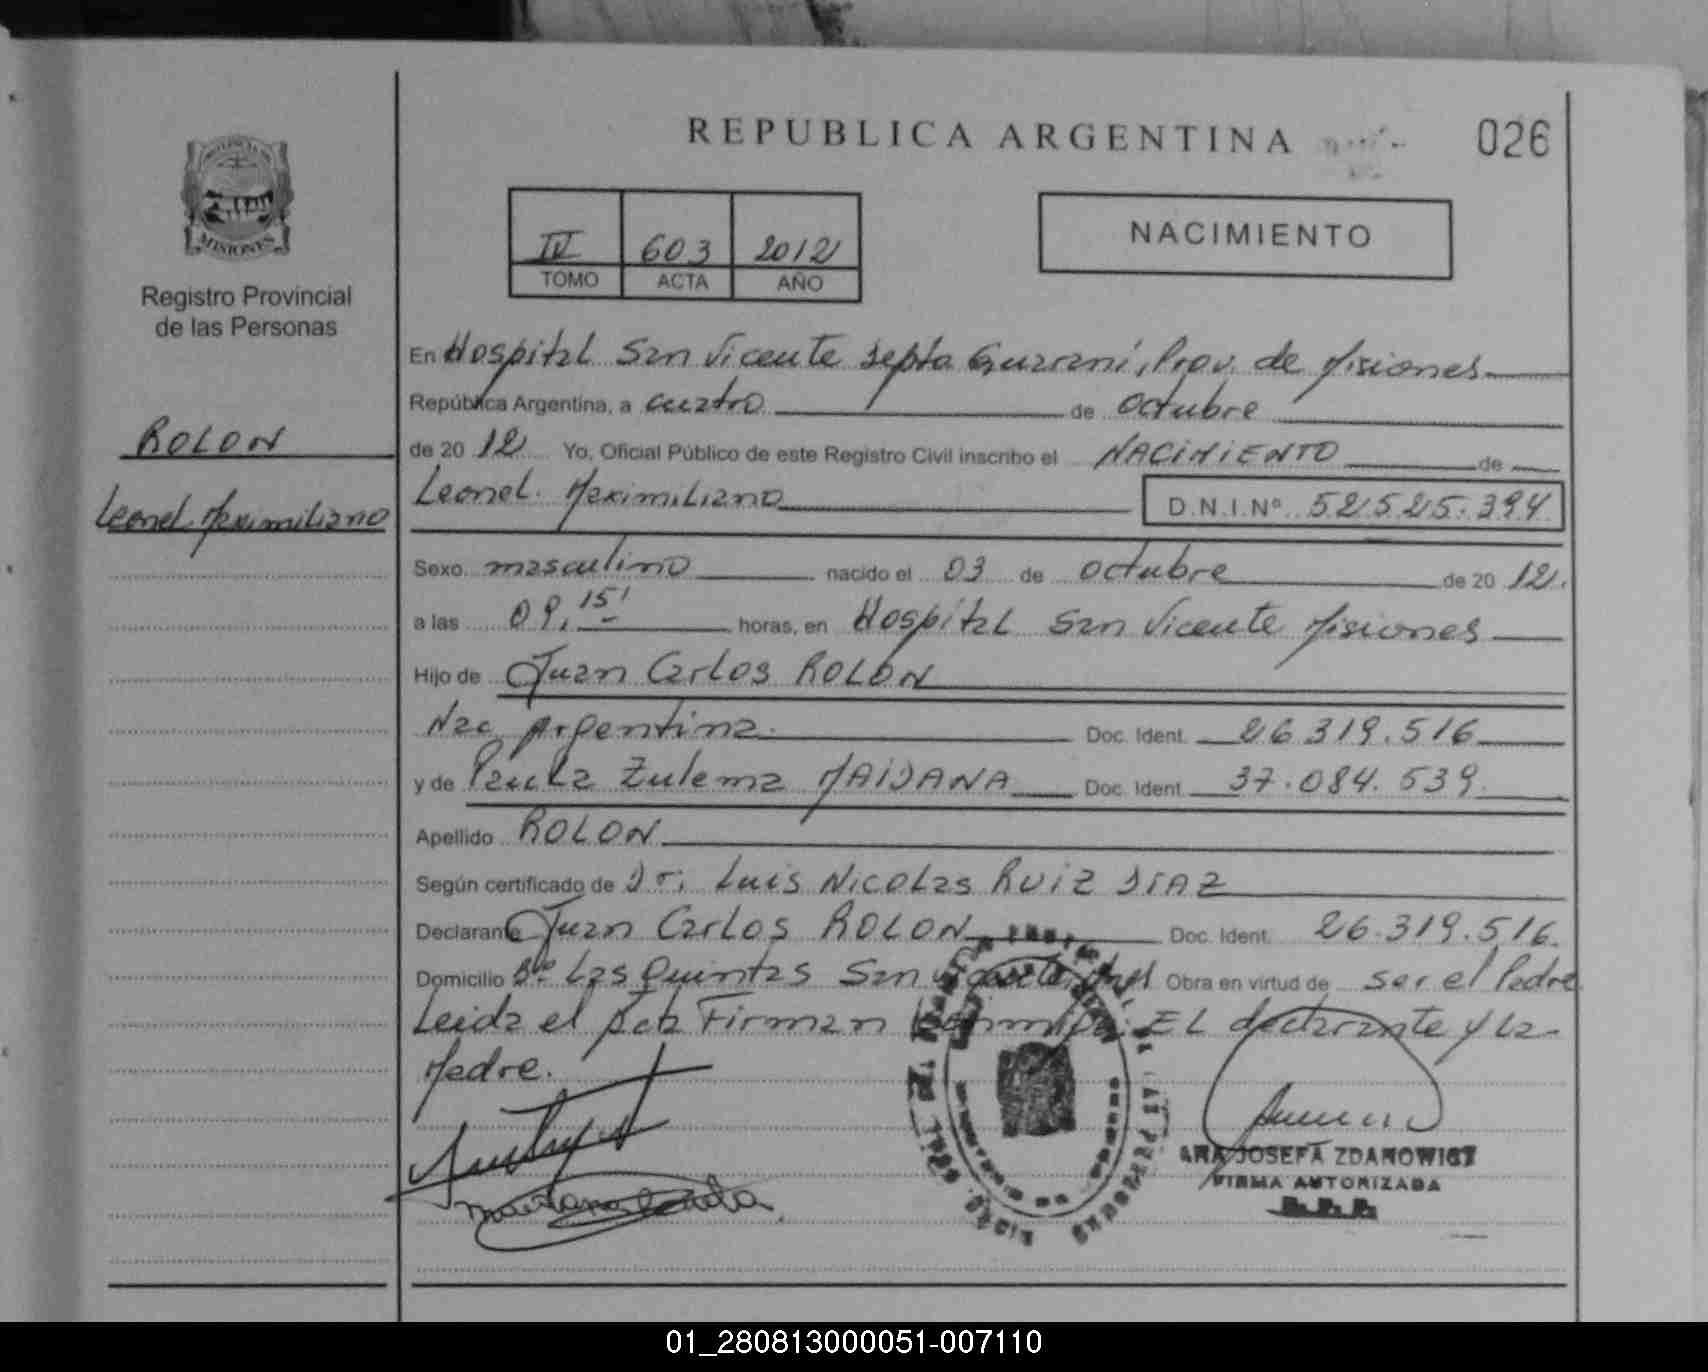 REPUBLICA ARGENTINA
026
MISIONES
Registro Provincial
de las Personas
IV 603 2012
TOMO ACTA AÑO
NACIMIENTO
ROLON
Leonel Maximiliano
En Hospital San Vicente Depto Guaraní, Prov. de Misiones
República Argentina, a cuatro de octubre
de 20 12 Yo, Oficial Público de este Registro Civil inscribo el NACIMIENTO de
Leonel Maximiliano D.N.I.Nº 52525.394
Sexo masculino nacido el 03 de octubre de 20 12.
a las 09,15' horas, en Hospital San Vicente Misiones
Hijo de Juan Carlos ROLON
Nac Argentina Doc. Ident. 26.319.516
y de Paula Zulema MAIDANA Doc. Ident. 37.084.539
Apellido ROLON
Según certificado de Dr. Luis Nicolas RUIZ DIAZ
Declarante Juan Carlos ROLON Doc. Ident. 26.319.516.
Domicilio Bº Las Quintas San Vicente Obra en virtud de ser el Padre
Leida el Acta Firman Conmigo. EL declarante y La
Madre.
ANA JOSEFA ZDANOWICZ
FIRMA AUTORIZADA
R.P.P.
01_280813000051-007110